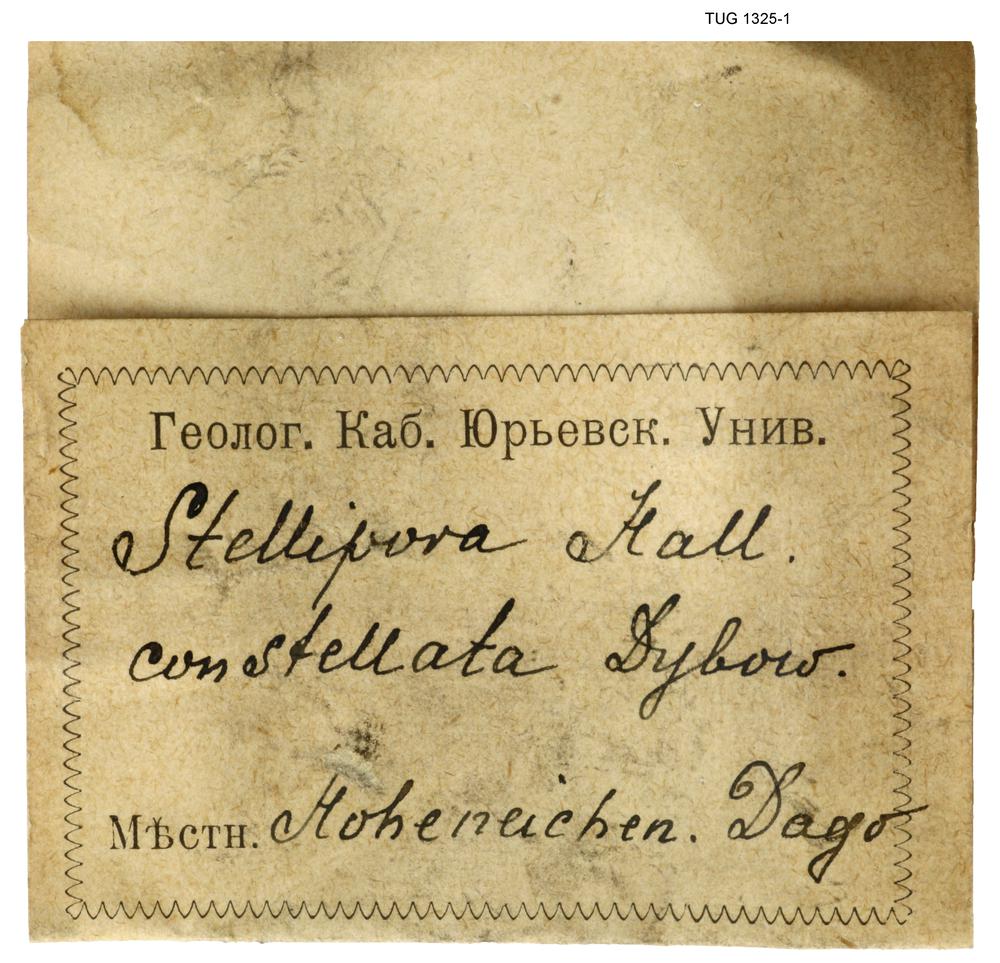 TUG 1325-1
Геолог. Каб. Юрьевск. Унив.
Stellipora Hall.
constellata Dybow.
Мѣстн. Hoheneichen. Dago